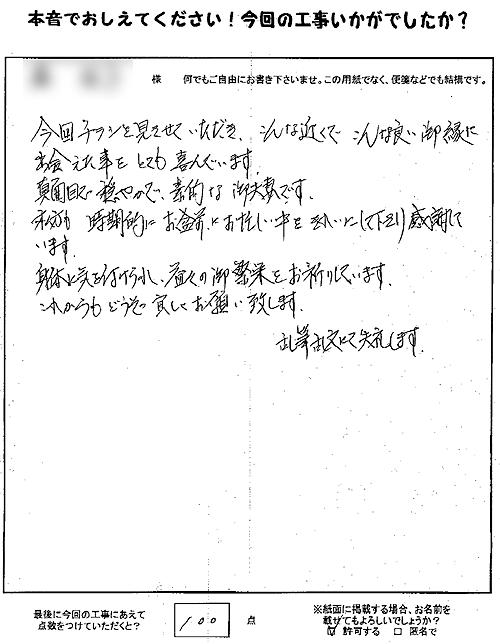 本音でおしえてください！今回の工事いかがでしたか？
様　何でもご自由にお書き下さいませ。この用紙でなく、便箋などでも結構です。
今回チラシを見させていただき、こんな近くで こんな良い御縁に
出会えた事を とても 喜んでいます。
真面目で 穏やかで、素的な 御夫妻です。
時期的に お盆前に お忙しい中を きれいにして下さり 感謝して
います。
身体に気を付けられ、益々の御繁栄をお祈りしています。
これからも どうぞ 宜しく お願い致します。
乱筆乱文にて失礼します。
最後に今回の工事にあえて
点数をつけていただくと？
100 点
※紙面に掲載する場合、お名前を
載せてもよろしいでしょうか？
☑ 許可する　□ 匿名で